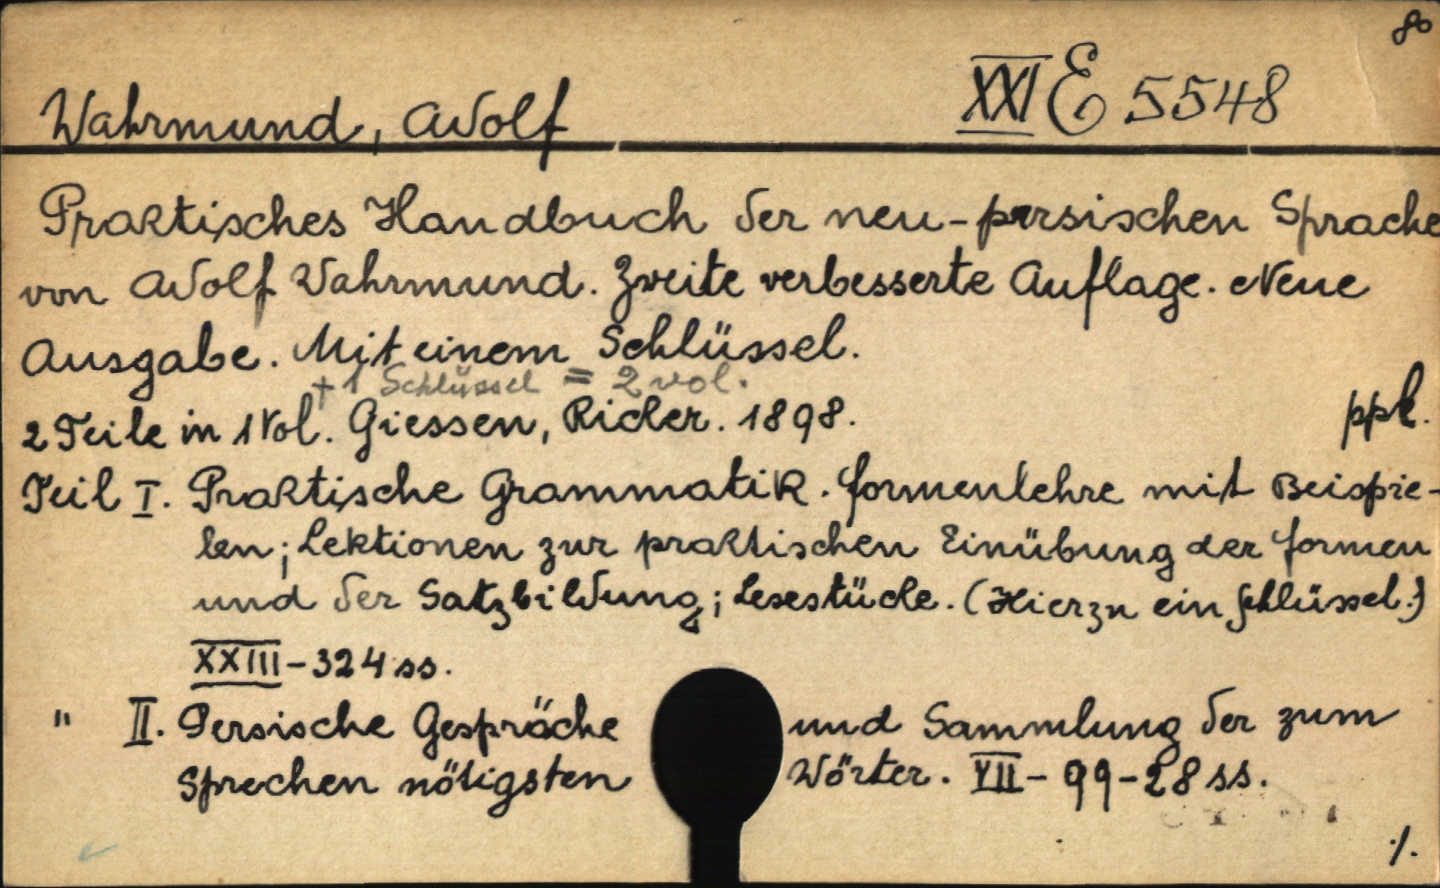 8°
XXI E 5548
Wahrmund, Adolf
Praktisches Handbuch der neu-persischen Sprache
von Adolf Wahrmund. Zweite verbesserte Auflage. Neue
Ausgabe. Mit einem Schlüssel.
+ 1 Schlüssel = 2 vol.
2 Teile in 1 Vol. Giessen, Ricker. 1898. ppk.
Teil I. Praktische Grammatik. Formenlehre mit Beispie-
len; Lektionen zur praktischen Einübung der Formen
und der Satzbildung; Lesestücke. (Hierzu ein Schlüssel.)
XXIII-324 ss.
" II. Persische Gespräche und Sammlung der zum
Sprechen nötigsten Wörter. VII-99-28 ss.
./.